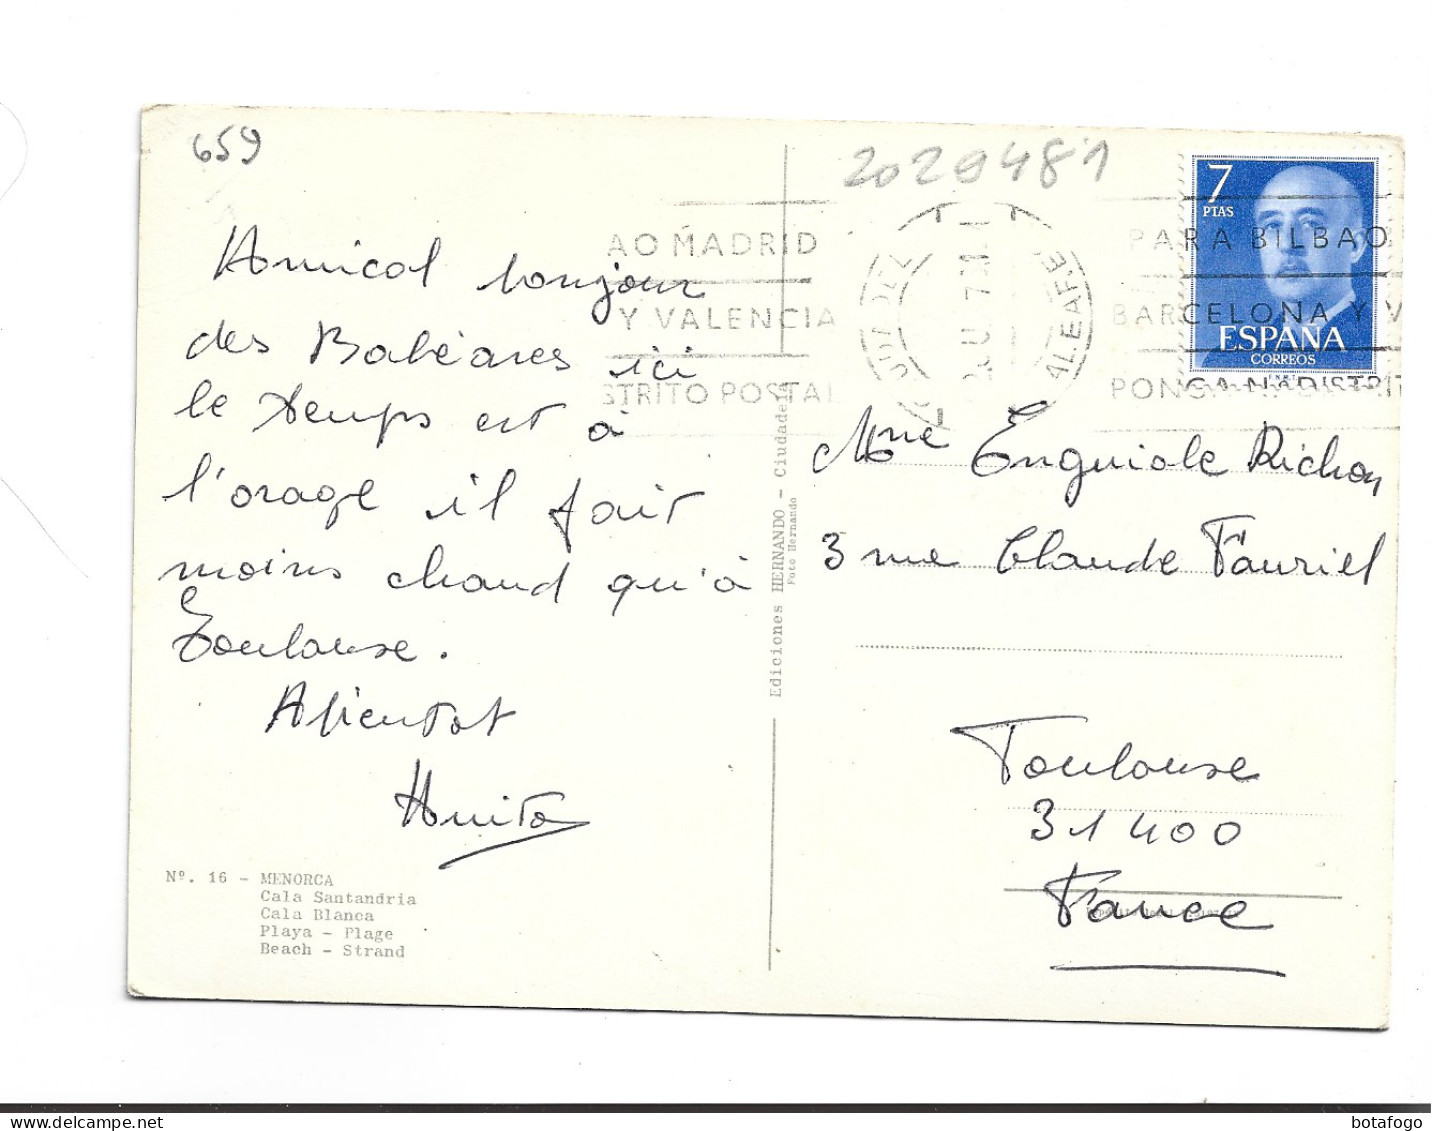 659
2029481
Amical bonjour
des Baléares ici
le temps est à
l'orage il fait
moins chaud qu'à
Toulouse.
A bientot
Anita
Nº. 16 - MENORCA
Cala Santandria
Cala Blanca
Playa - Plage
Beach - Strand
Ediciones HERNANDO - Ciudadela
Foto Hernando
AO MADRID
Y VALENCIA
STRITO POSTAL
PARA BILBAO
BARCELONA Y V
PONGA Nº DISTRIT
7
PTAS
ESPAÑA
CORREOS
Mme Enguiale Richon
3 rue Claude Fauriel
Toulouse
31400
France
botafogo